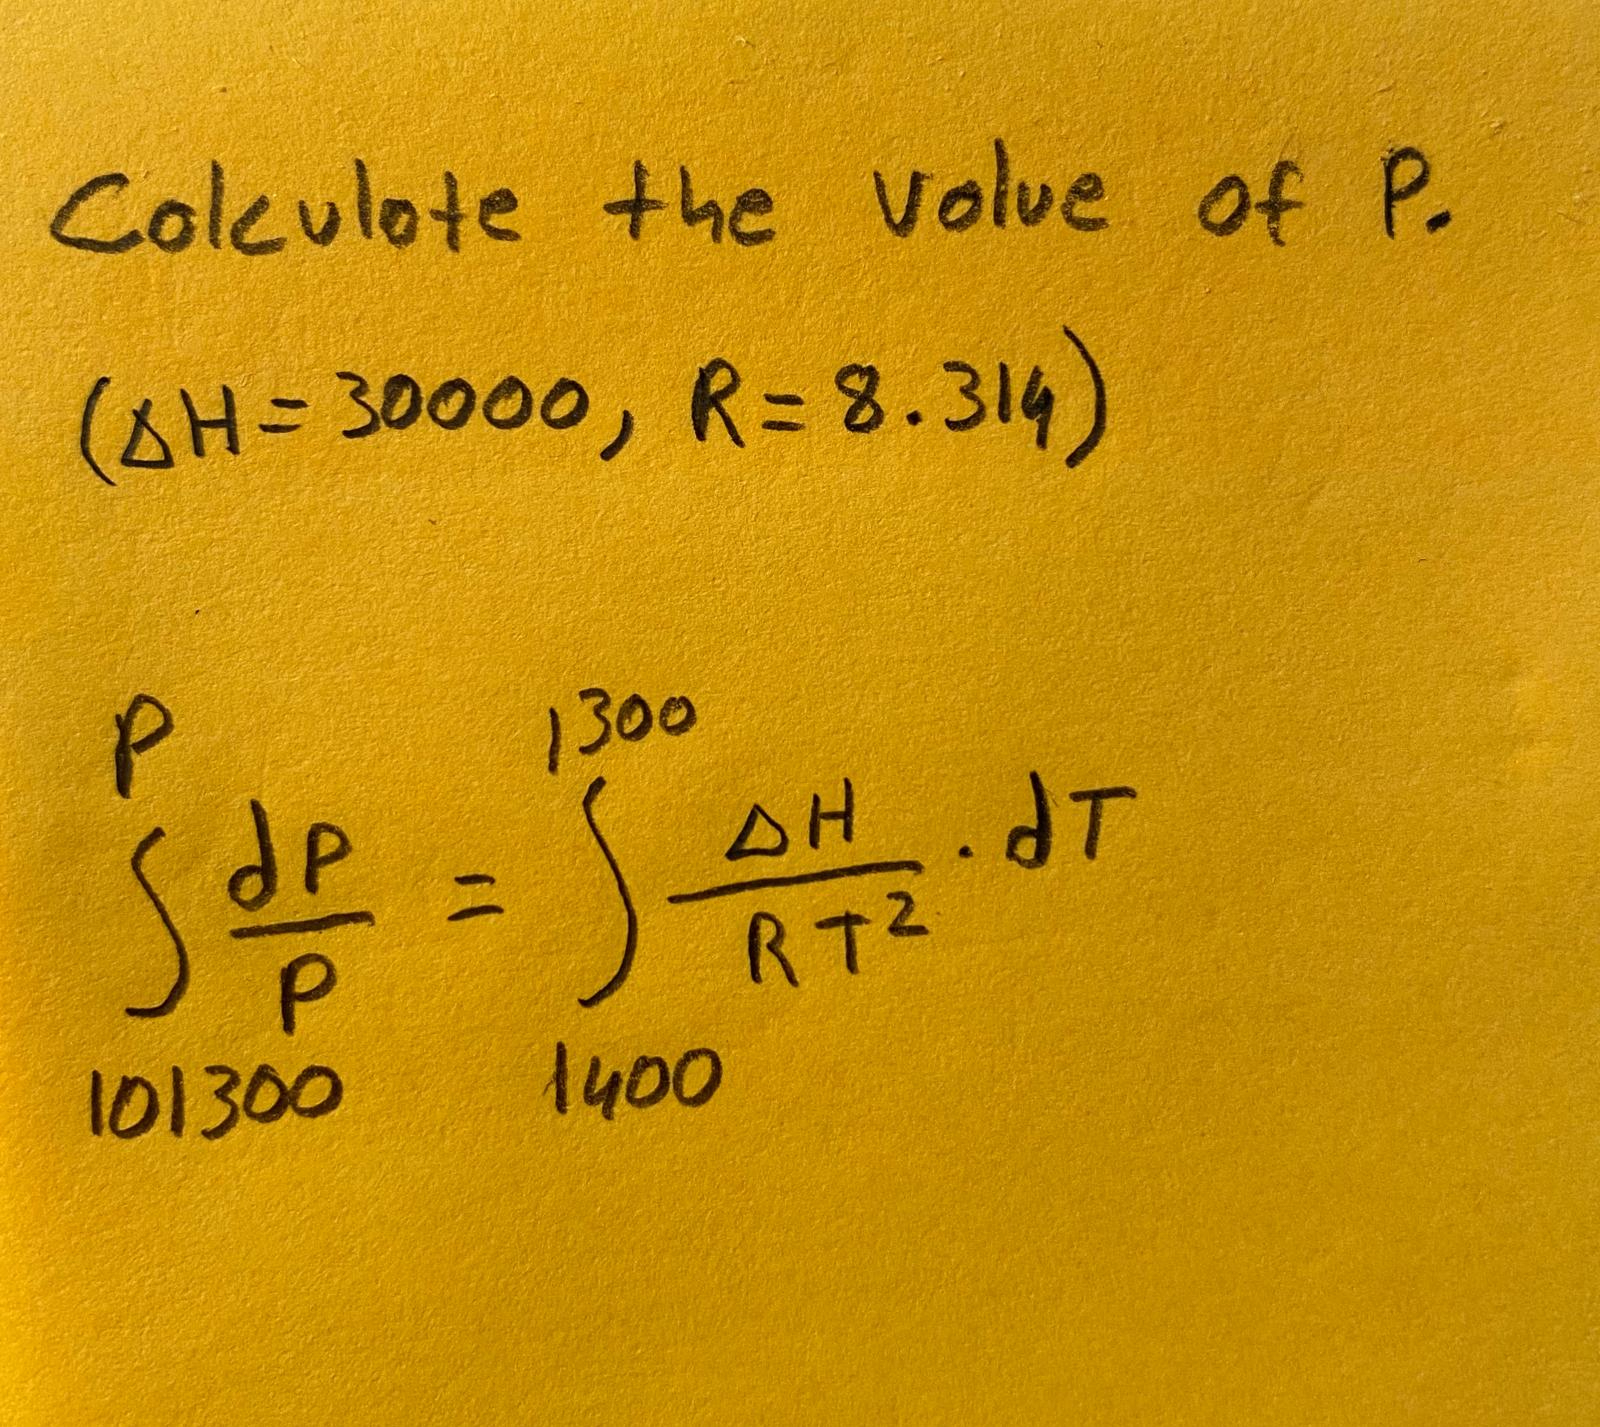 Calculate the value of P.
(ΔH = 30000, R = 8.314)
∫₁₀₁₃₀₀ᴾ dP/P = ∫₁₄₀₀¹³⁰⁰ ΔH/RT² . dT